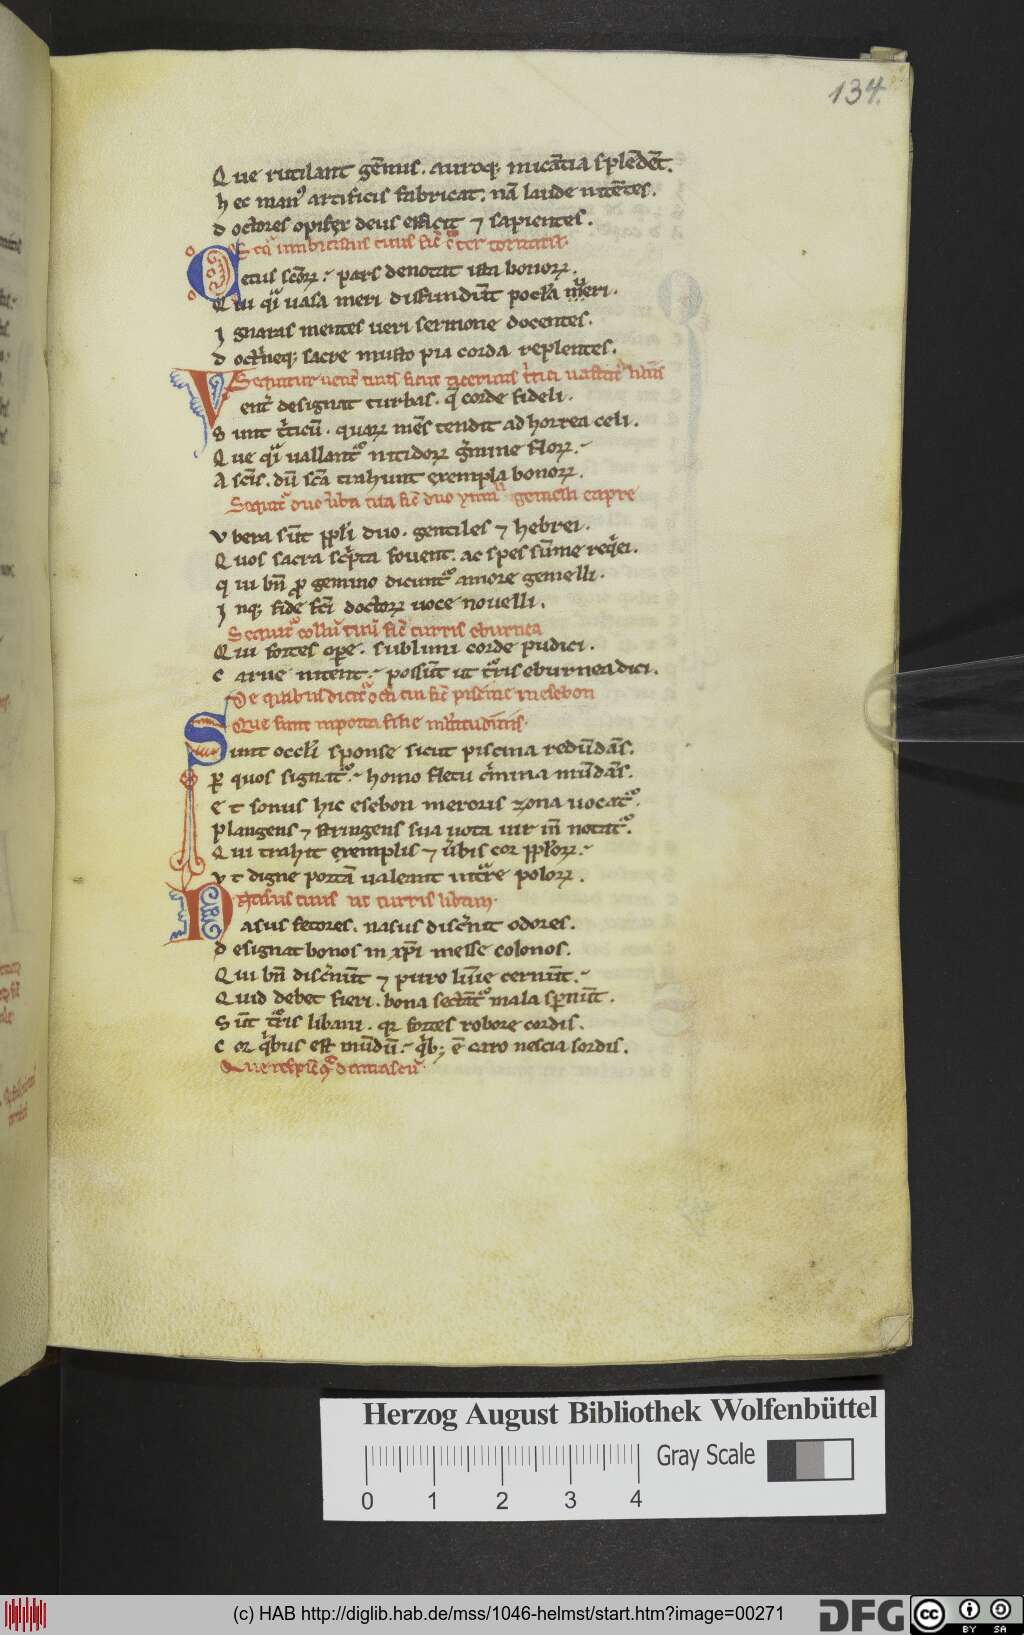 134.
Que rutilant gēmis. auroq; micātia splēdēt.
hec man⁹ artificis fabricat. nā laude nitētes.
doctores opifex deus efficit ⁊ sapientes.
Seqͥ umbilicus tuus sic̄ cͣter tornatil̓.
Cetus scōꝝ : pars denotat ista bonoꝝ.
Qui qͣi uasa meri diffundūt pocl̓a mͥeri.
Ignaras mentes ueri sermone docentes.
doctͥneq; sacre musto pia corda replentes.
Sequitur uent̓ tuus sicut aceruus tͥtici uallat̓ liliis
Vent̓ designat turbas. q̄ corde fideli.
Sunt tͥticū. quaꝝ mēs tendit ad horrea celi.
Que qͣi uallantᷣ nitidoꝝ gͣmine floꝝ.
Ascīs. dū scā trahunt exempla bonoꝝ.
Sequitᷣ duo ub̓a tua sic̄ duo gemelli capre
Vbera sūt ppl̓i duo. gentiles ⁊ hebrei.
Quos sacra scͥpta fouent. ac spes sūme reqͥei.
qui bn̄ ꝓ gemino dicuntᷣ amore gemelli.
Inq; fide fcī doctoꝝ uoce nouelli.
Sequitᷣ collū tuū sic̄ turris eburnea
Qui fortes oꝑe. sublimi corde pudici.
Carne nitent : possūt ut tᷣris eburnea dici.
De quibus dicitᷣ oc̄li tui sic̄ piscine in esebon
Que sunt in porta filie multitudinis.
Sunt occl̓i sponse sicut piscina redūdās.
ꝑ quos signatᷣ : homo fletu cͥmina mūdās.
Et sonus hic esebon meroris zona uocatᷣ.
Plangens ⁊ stringens sua uota uir in̄ notatᷣ.
Qui trahit exemplis ⁊ ūbis cor ppl̓oꝝ :
Vt digne portā ualeant intͣre poloꝝ.
Nasus tuus ut turris libani.
Nasus fetores. nasus discͥnit odores.
designat bonos in xp̄i messe colonos.
Qui bn̄ discͥnūt ⁊ puro lumīe cernūt :
Quid debet fieri. bona sectātᷣ mala sꝑnūt.
Sūt tᷣris libani. qr fortes robore cordis.
Cor qͥbus est mūdū : qͥb; ē caro nescia sordis.
Que respic̄ ꝯͣ damascū.
Herzog August Bibliothek Wolfenbüttel
0 1 2 3 4
Gray Scale
(c) HAB http://diglib.hab.de/mss/1046-helmst/start.htm?image=00271
DFG
cc BY SA